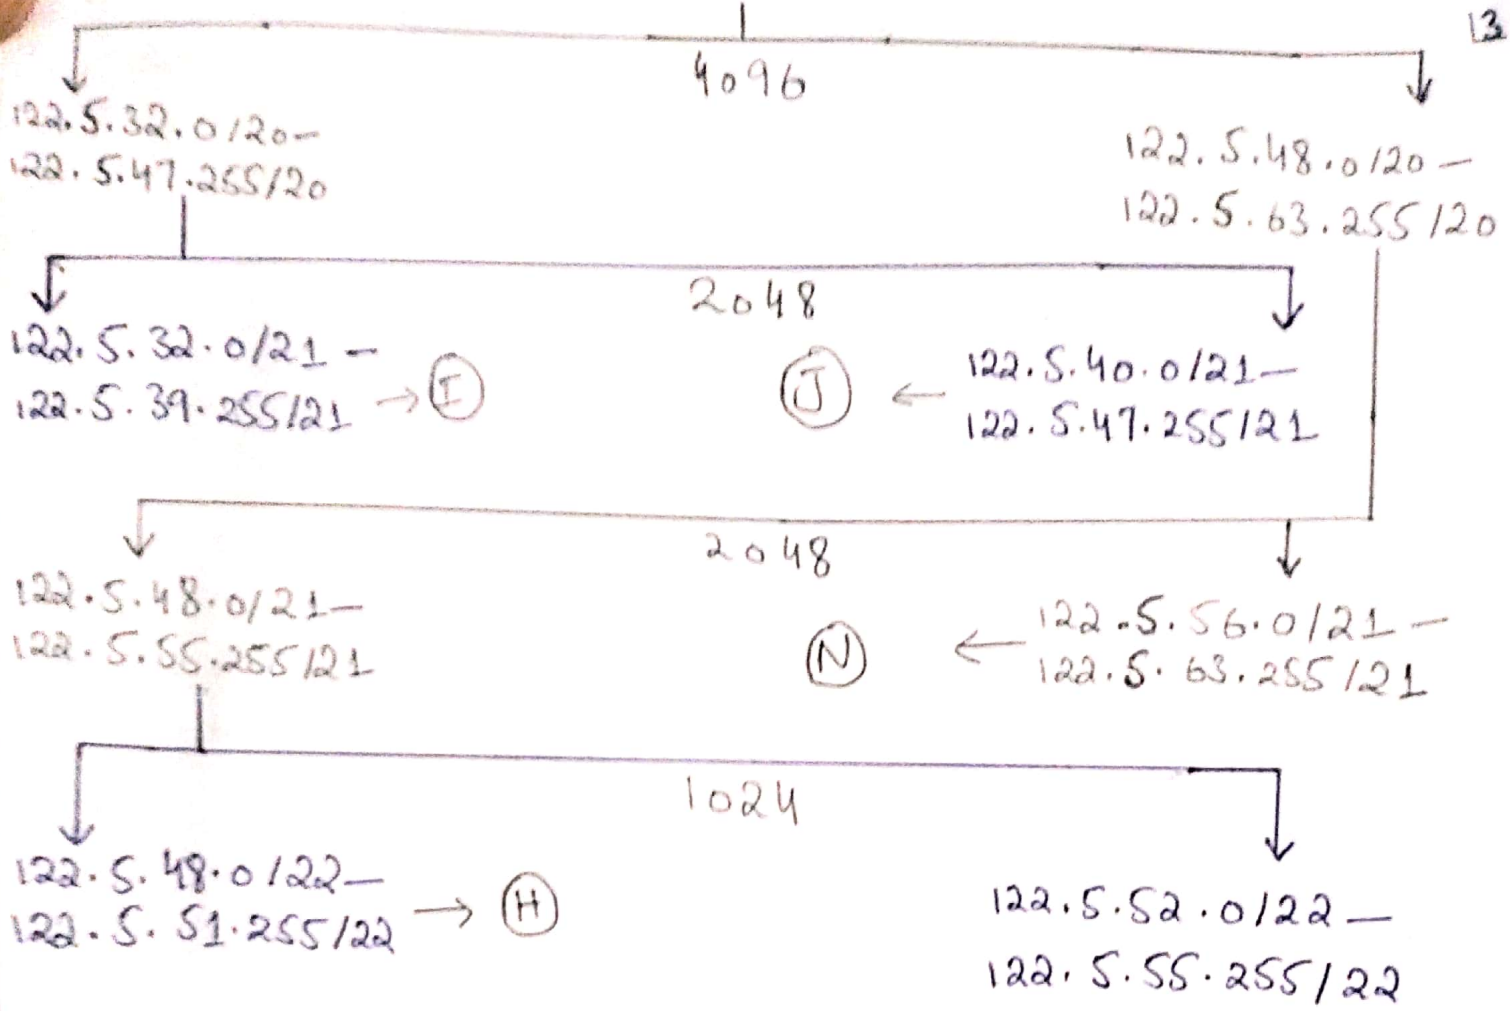 13
4096
122.5.32.0/20-
122.5.47.255/20
122.5.48.0/20-
122.5.63.255/20
2048
122.5.32.0/21-
122.5.39.255/21 → I
J ← 122.5.40.0/21-
122.5.47.255/21
2048
122.5.48.0/21-
122.5.55.255/21
N ← 122.5.56.0/21-
122.5.63.255/21
1024
122.5.48.0/22-
122.5.51.255/22 → H
122.5.52.0/22-
122.5.55.255/22